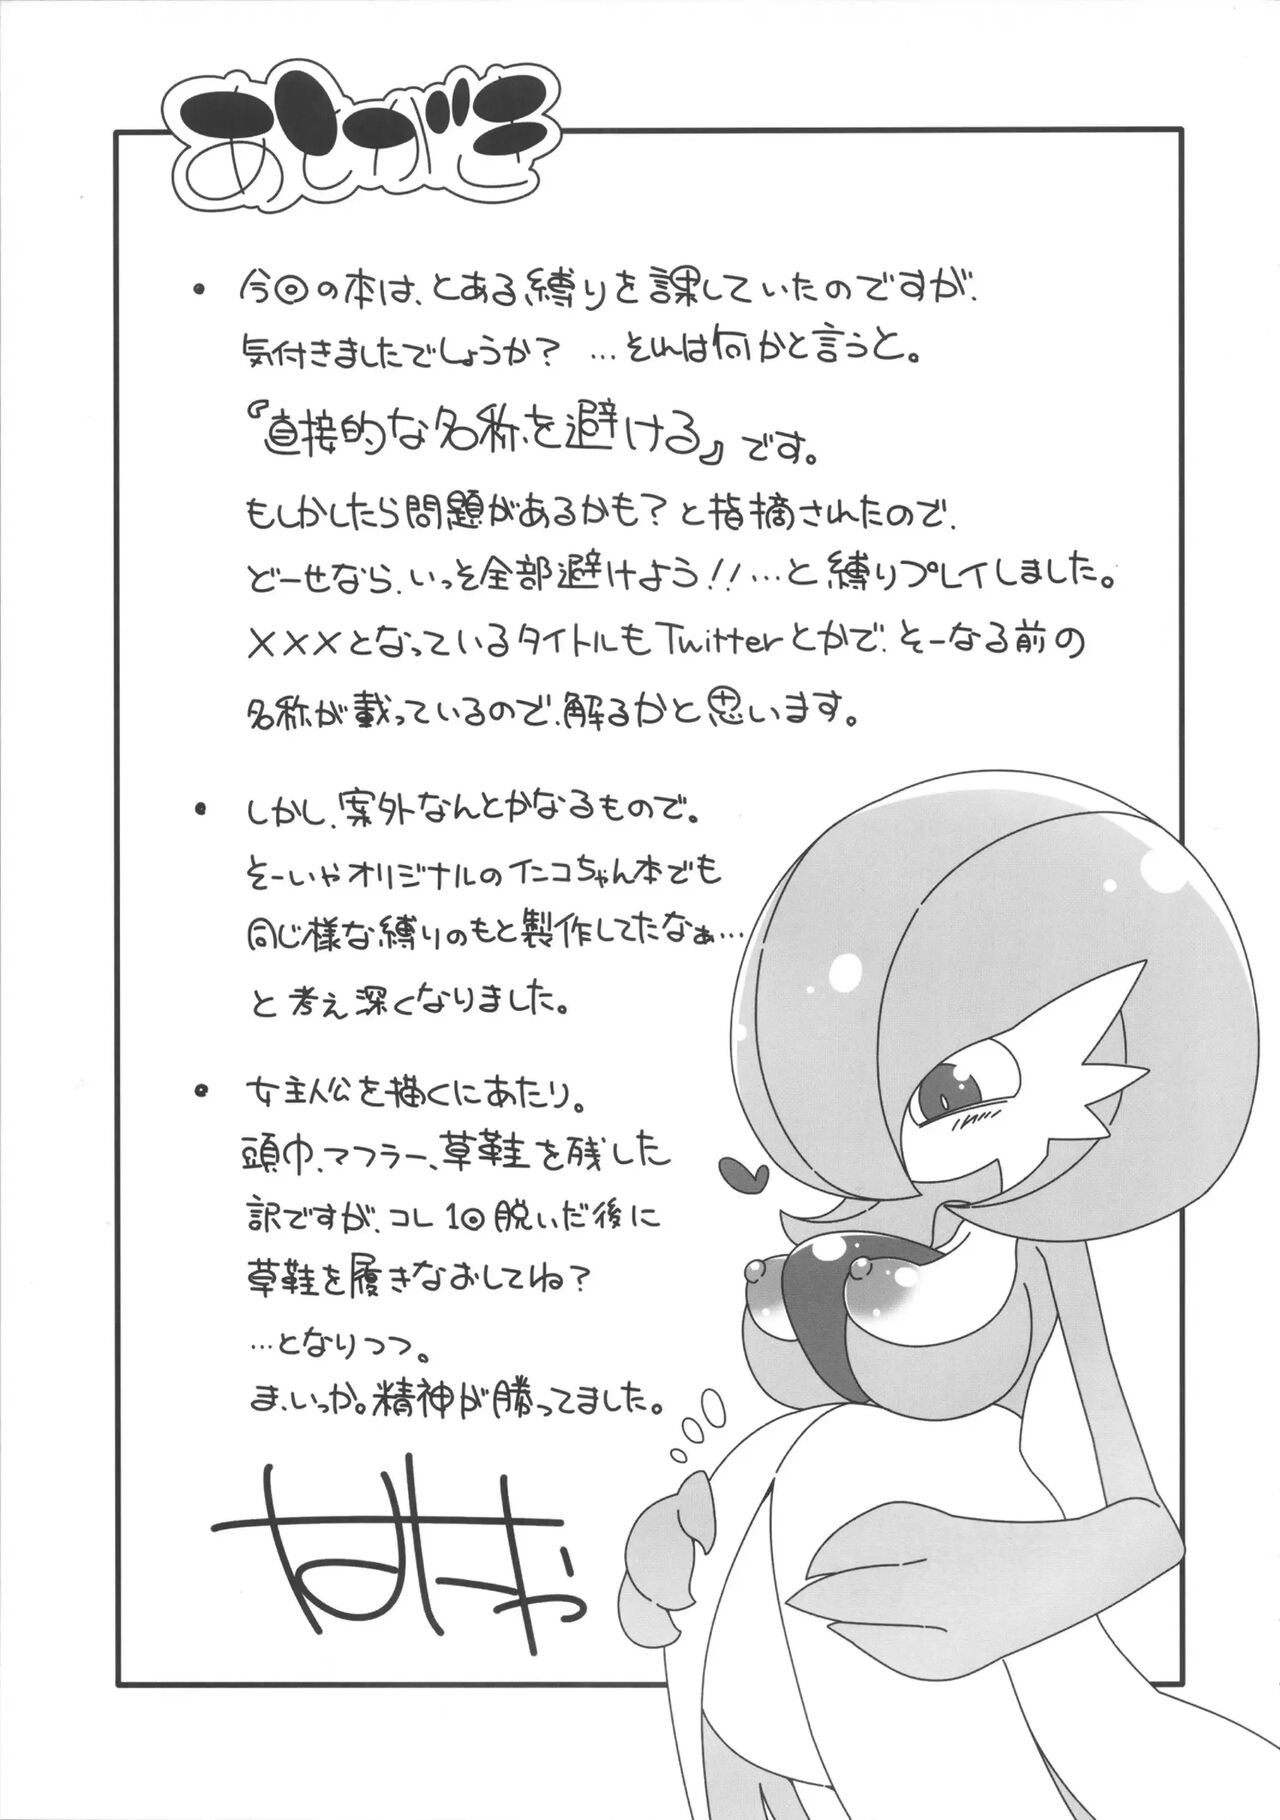 あとがき
・今回の本は、とある縛りを課していたのですが、
気付きましたでしょうか？ …それは何かと言うと。
『直接的な名称を避ける』です。
もしかしたら問題があるかも？と指摘されたので、
どーせなら、いっそ全部避けよう！！…と縛りプレイしました。
×××となっているタイトルもTwitterとかで、そーなる前の
名称が載っているので、解るかと思います。
・しかし、案外なんとかなるもので。
そーいやオリジナルのインコちゃん本でも
同じ様な縛りのもと製作してたなぁ…
と考え深くなりました。
・女主人公を描くにあたり。
頭巾、マフラー、草鞋を残した
訳ですが、コレ1回脱いだ後に
草鞋を履きなおしてね？
…となりつつ。
ま、いっか。精神が勝ってました。